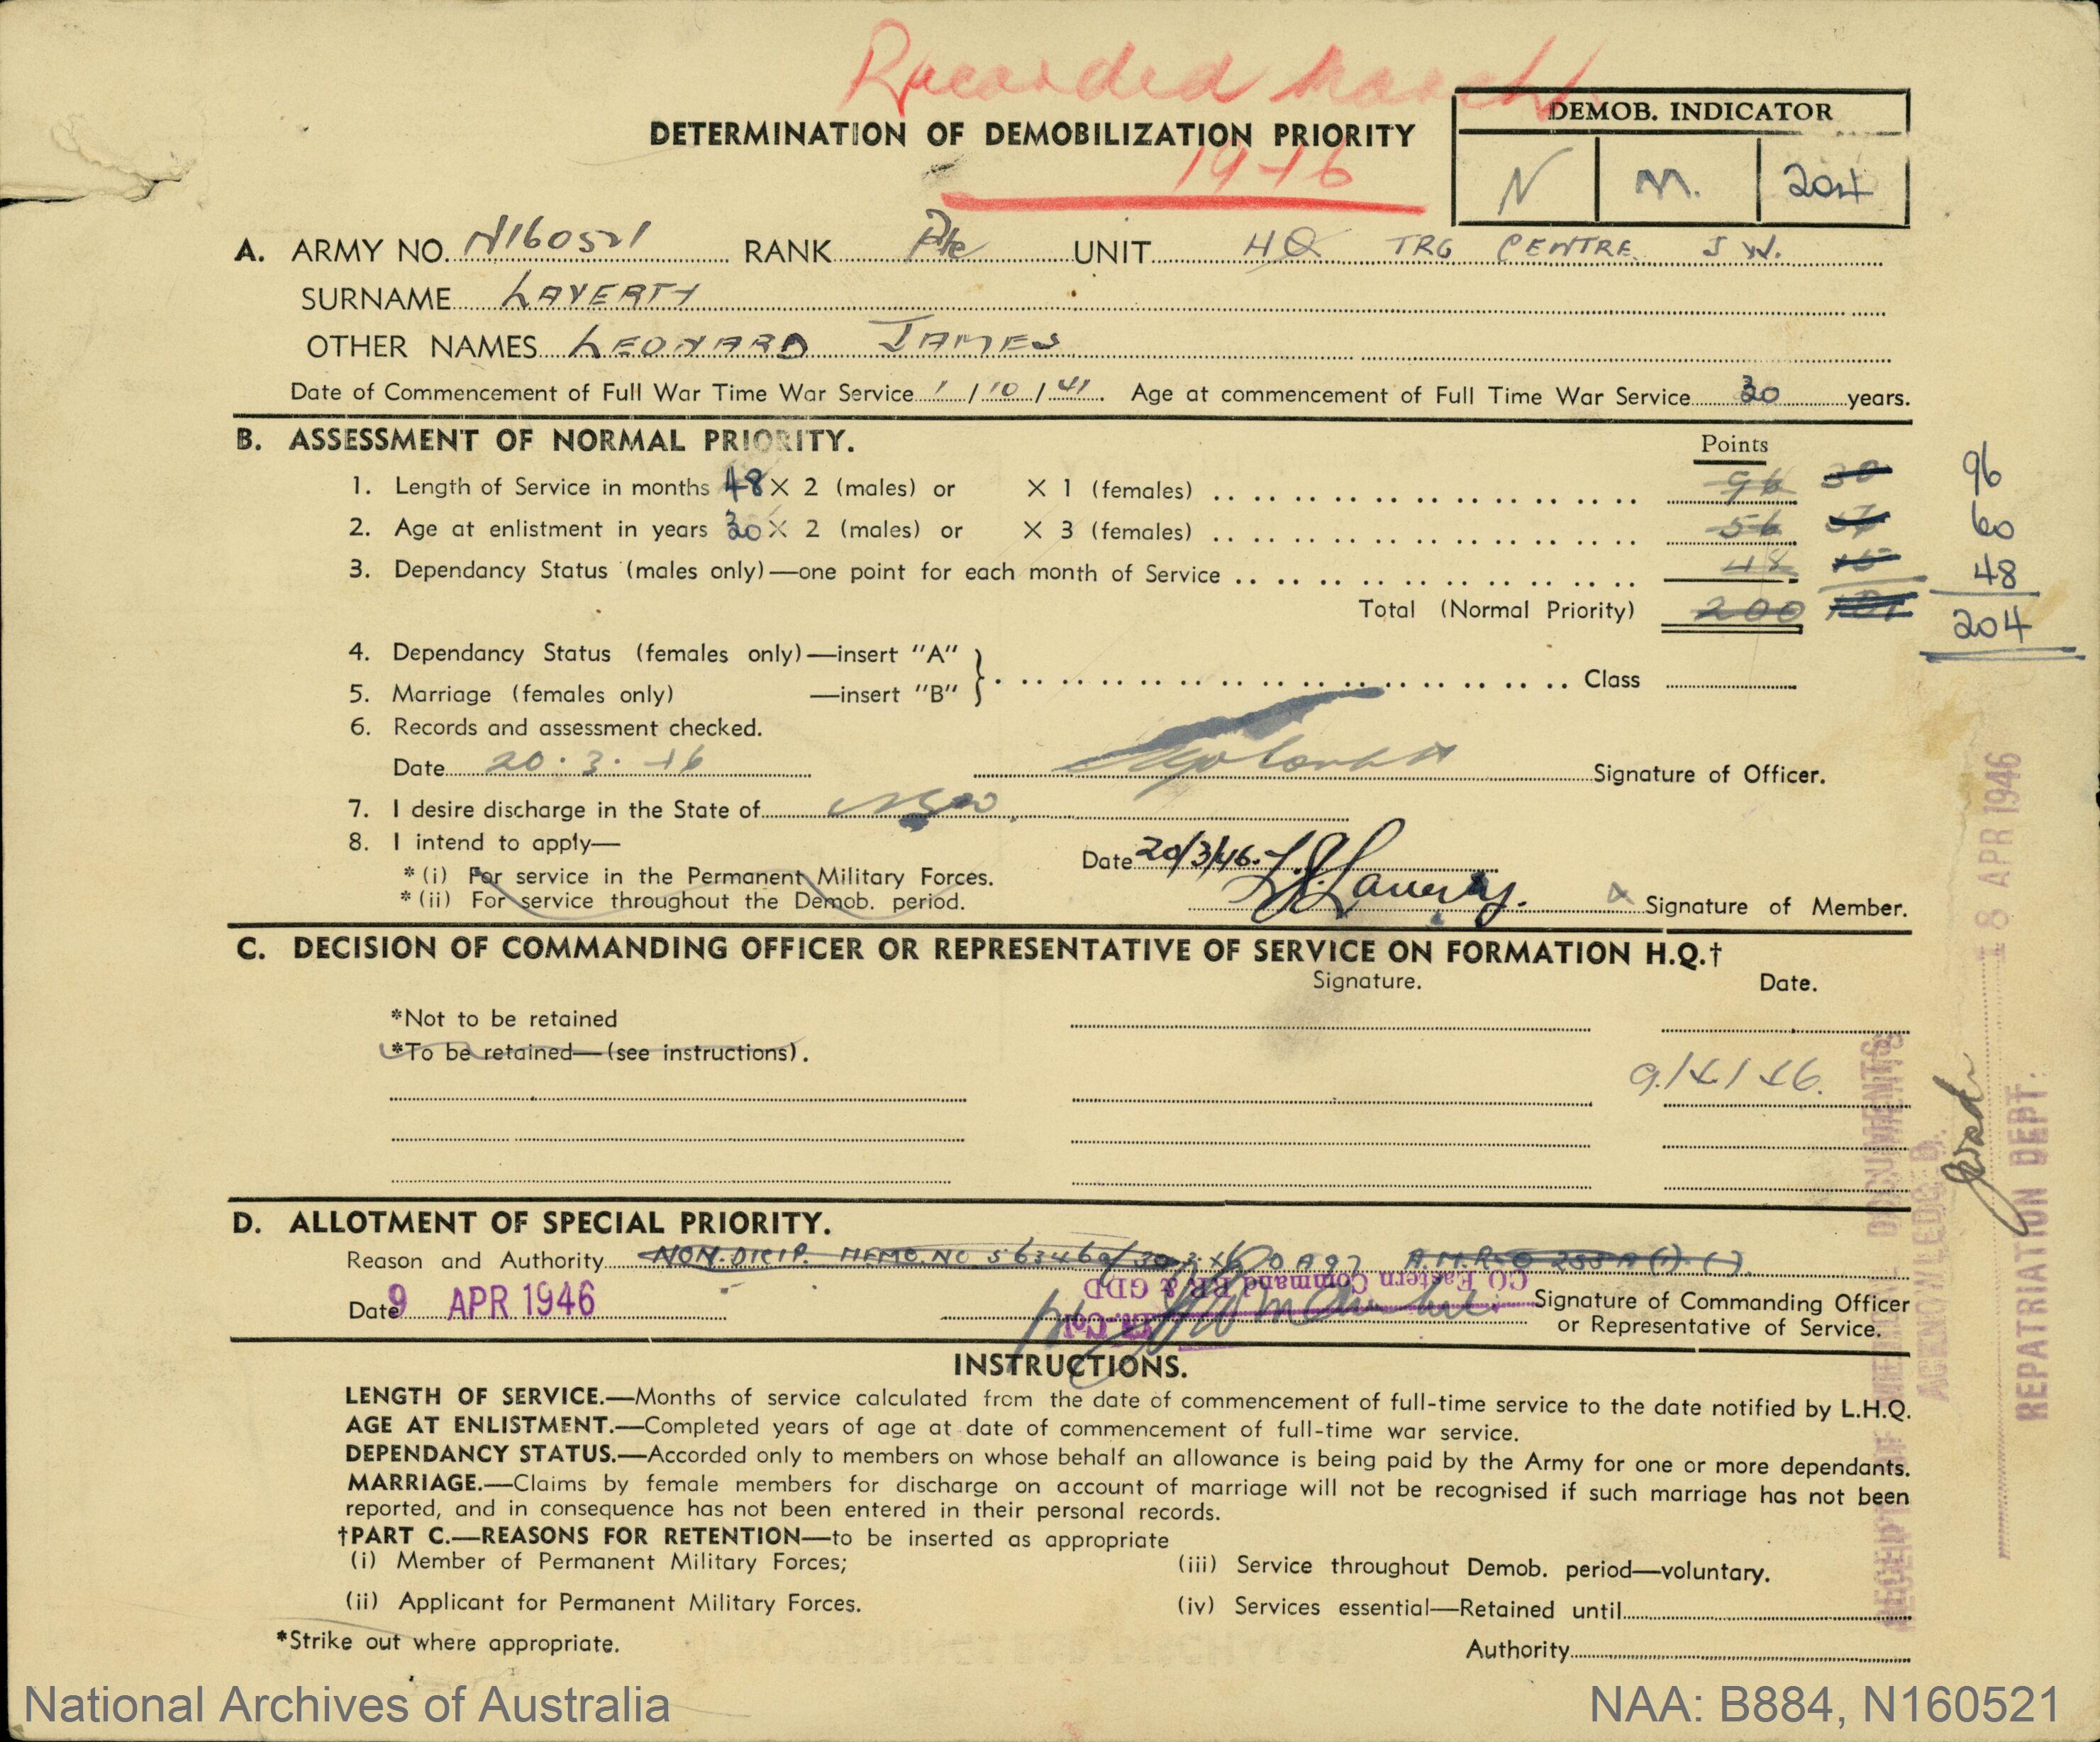 Recorded March
1946
DETERMINATION OF DEMOBILIZATION PRIORITY
DEMOB. INDICATOR
N M. 204
A. ARMY NO. N160521 RANK Pte UNIT HQ TRG CENTRE J.W.
SURNAME LAVERTY
OTHER NAMES LEONARD JAMES
Date of Commencement of Full War Time War Service 1 / 10 / 41. Age at commencement of Full Time War Service 30 years.
B. ASSESSMENT OF NORMAL PRIORITY.
Points
1. Length of Service in months 48 × 2 (males) or × 1 (females) 96 30 96
2. Age at enlistment in years 30 × 2 (males) or × 3 (females) 56 60
3. Dependancy Status (males only)—one point for each month of Service 48 15 48
Total (Normal Priority) 200 204
4. Dependancy Status (females only)—insert "A"
5. Marriage (females only) —insert "B"
Class
6. Records and assessment checked.
Date 20.3.46 Signature of Officer.
7. I desire discharge in the State of NSW
8. I intend to apply—
Date 20/3/46. L.J. Laverty.
*(i) For service in the Permanent Military Forces.
*(ii) For service throughout the Demob. period.
Signature of Member.
C. DECISION OF COMMANDING OFFICER OR REPRESENTATIVE OF SERVICE ON FORMATION H.Q.†
Signature. Date.
*Not to be retained
*To be retained—(see instructions).
9/4/46.
D. ALLOTMENT OF SPECIAL PRIORITY.
Reason and Authority NON. DICIP. MEMO. NO 563469/30.3.46
CO Eastern Command RP & GDD
Lt. Col.
Date 9 APR 1946
Signature of Commanding Officer
or Representative of Service.
INSTRUCTIONS.
LENGTH OF SERVICE.—Months of service calculated from the date of commencement of full-time service to the date notified by L.H.Q.
AGE AT ENLISTMENT.—Completed years of age at date of commencement of full-time war service.
DEPENDANCY STATUS.—Accorded only to members on whose behalf an allowance is being paid by the Army for one or more dependants.
MARRIAGE.—Claims by female members for discharge on account of marriage will not be recognised if such marriage has not been
reported, and in consequence has not been entered in their personal records.
†PART C.—REASONS FOR RETENTION—to be inserted as appropriate
(i) Member of Permanent Military Forces;
(iii) Service throughout Demob. period—voluntary.
(ii) Applicant for Permanent Military Forces.
(iv) Services essential—Retained until
*Strike out where appropriate.
Authority
RECEIPT OF MEDICAL DOCUMENTS
ACKNOWLEDGED.
18 APR 1946
REPATRIATION DEPT.
National Archives of Australia
NAA: B884, N160521